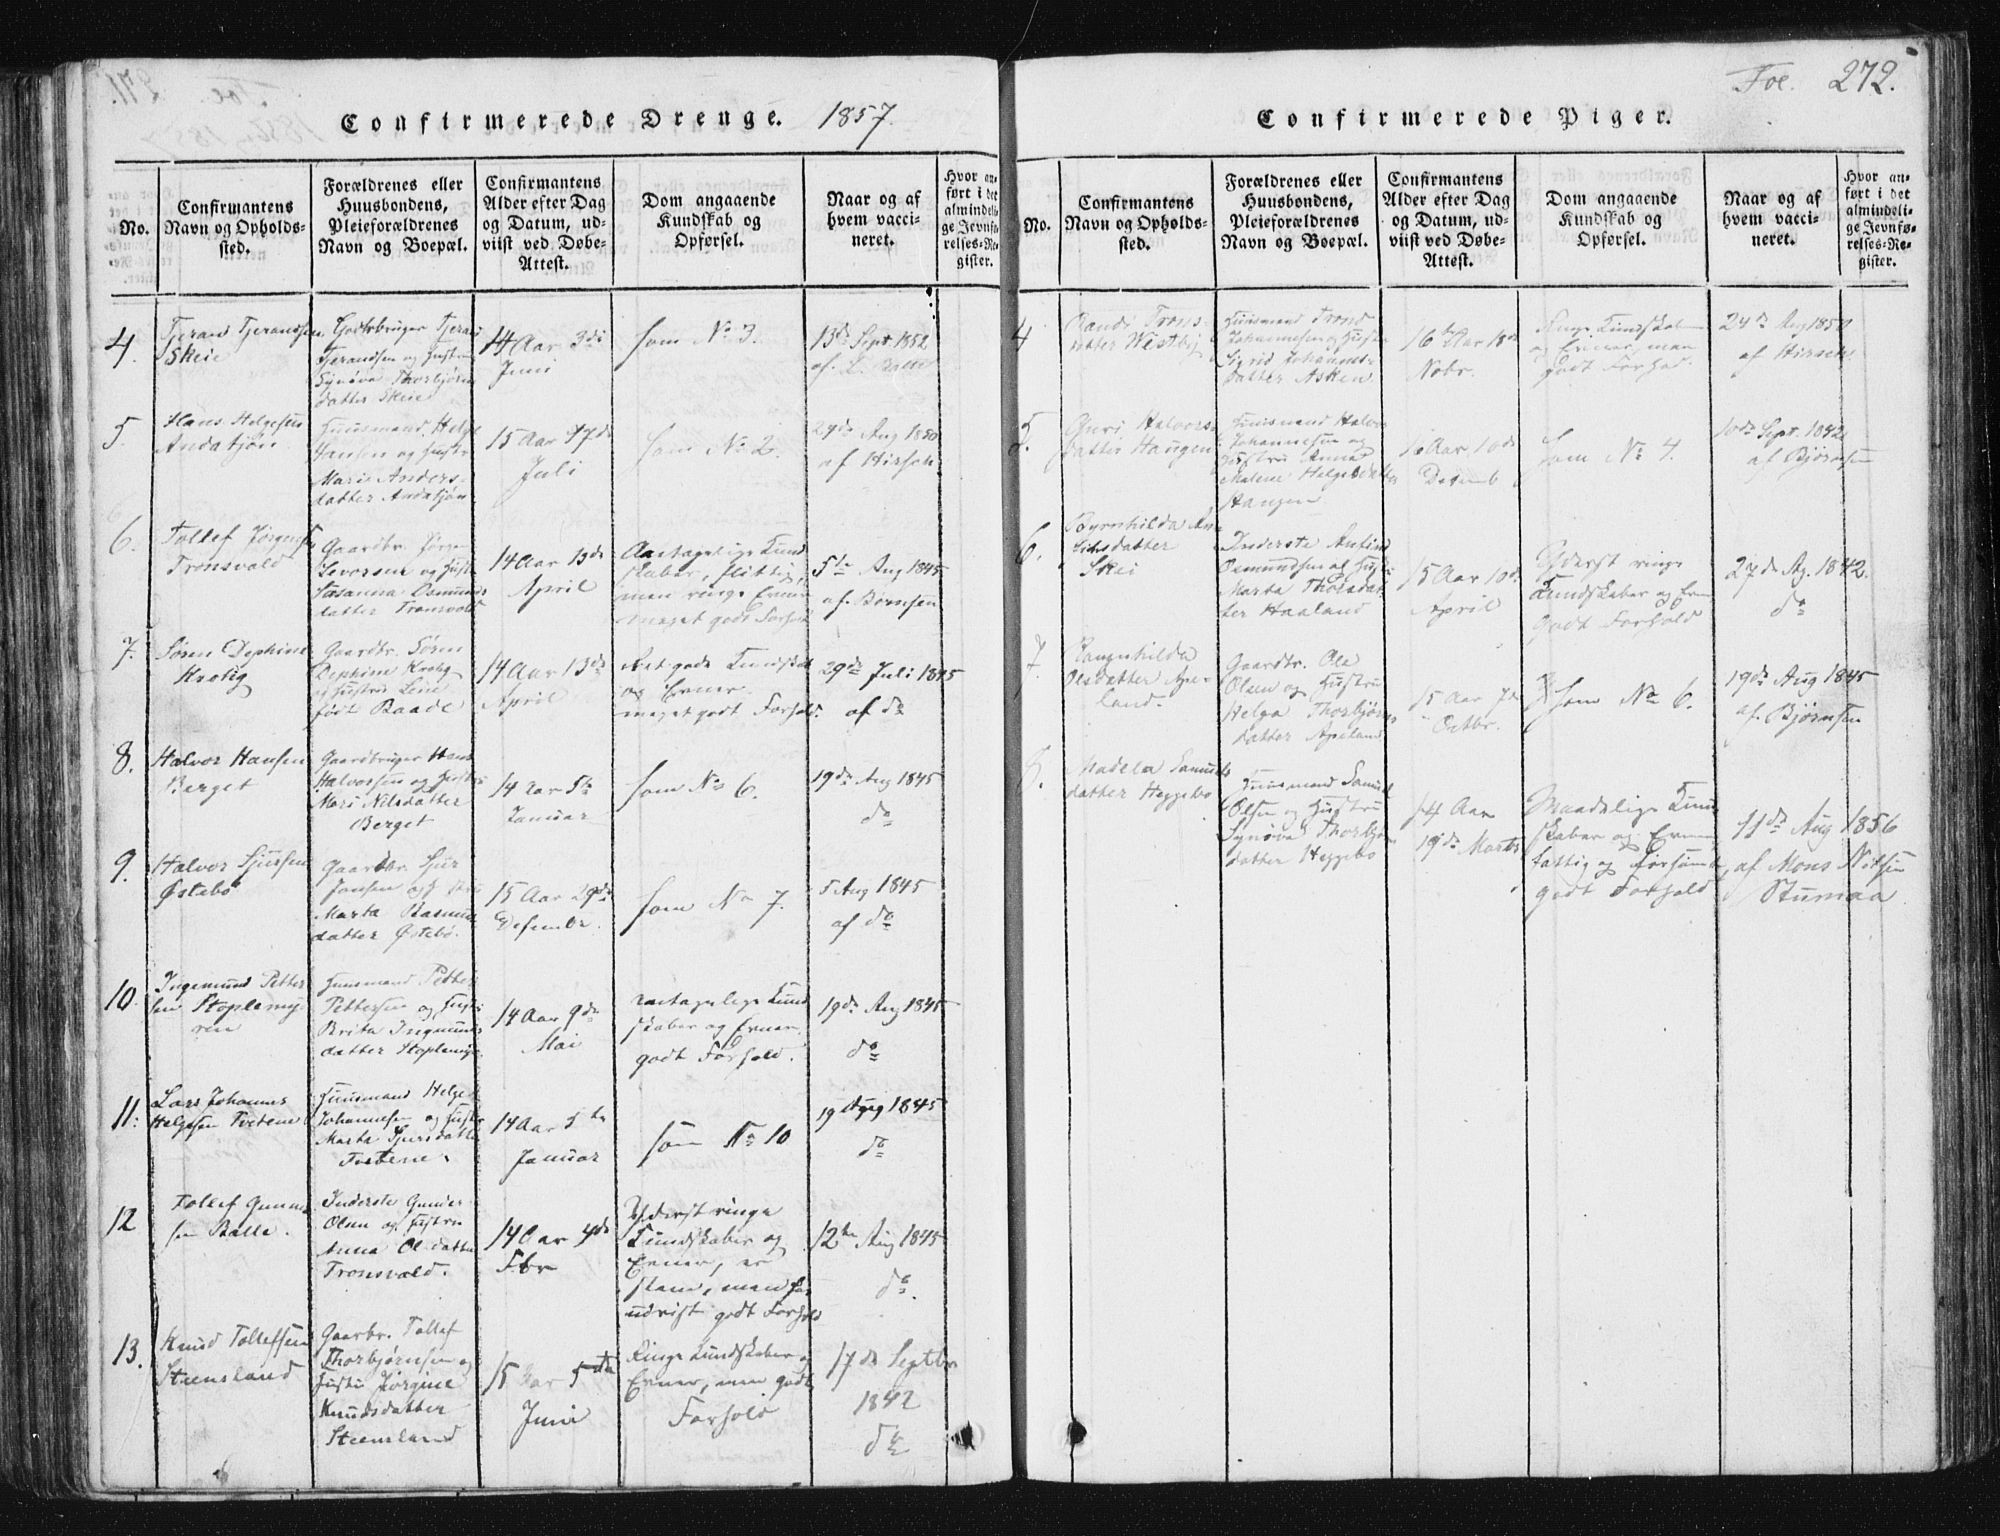 Confirmerede Drenge. 1857.
No.
Confirmantens
Navn og Opholds-
sted.
Forældrenes eller
Huusbondens,
Pleieforældrenes
Navn og Boepæl.
Confirmantens
Alder efter Dag
og Datum, ud-
viist ved Døbe-
Attest.
Dom angaaende
Kundskab og
Opførsel.
Naar og af
hvem vacci-
neret.
Hvor an-
ført i det
almindeli-
ge Jevnfø-
relses-Re-
gister.
4.
Tjerand Tjerandsen
Skeie
Gaardbruger Tjerand
Tjerandsen og Hustru
Synøva Thorbjørns
datter Skeie
14 Aar 3de
Juni
som No 3.
13de Sept. 1852
af
5.
Hans Helgesen
Andatjøn
Huusmand Helge
Hansen og Hustru
Mari Anders-
datter Andatjøn
15 Aar 17de
Juli
som No 2.
29de Aug 1850
af Hirsch
6.
Tollef Jørgens
Tronsvold
Gaardbr. Jørgen
Levorsen og Hustru
Susanna Osmunds
datter Tronsvold
14 Aar 13de
April
Antagelige Kund
skaber, flittig,
men ringe Evner
meget godt Forhold
5te Aug 1845
af Børnsen
7.
Søren Dephine
Krohg
Gaardbr. Søren
Dephine Krohg
og Hustru Lene
født Baade
14 Aar 13de
April
Ret gode Kundskab
og Evner.
meget godt Forhold.
29de Juli 1845
af do
8.
Halvor Hansen
Berget
Gaardbruger Hans
Halvorsen og Hustru
Mari Nilsdatter
Berget
14 Aar 5te
Januar
som No 6.
19de Aug 1845
do
9.
Halvor Sjursen
Østebø
Gaardbr. Sjur
Jansen og Hustru
Marta Rasmus
datter Østebø.
15 Aar 29de
Desembr.
som No 7.
5 Aug 1845
af do
10.
Ingemund Petter
sen Stoplemy-
ren
Huusmand Petter
Pettersen og Hustru
Brita Ingmunds
datter Stoplemyr
14 Aar 9de
Mai
antagelige Kund
skaber og Evner
godt Forhold.
19de Aug 1845
do
11.
Lars Johannes
Helgesen Tvetene
Huusmand Helge
Johannesen og Hustru
Marta Sjursdatter
Tvetene.
14 Aar 5te
Januar
som No 10
19 Aug 1845
do
12
Tollef Gunder
sen Bølle.
Inderste Gunder
Olsen og Hustru
Anna Olsdatter
Tronsvold.
14 Aar 4de
Fbr
Yderst ringe
Kundskaber og
Evner, er
men
udvist godt Forhold
12te Aug 1845
do.
13.
Knud Tollefsen
Steensland
Gaardbr. Tollef
Thorbjørnsen og
Hustru Jørgine
Knudsdatter
Steensland
15 Aar 5te
Juni
Ringe Kundskaber og
Evner, men godt
Forhold
17de Septbr
1842
do
Foe. 272.
Confirmerede Piger.
No.
Confirmantens
Navn og Opholds-
sted.
Forældrenes eller
Huusbondens,
Pleieforældrenes
Navn og Boepæl.
Confirmantens
Alder efter Dag
og Datum, ud-
viist ved Døbe-
Attest.
Dom angaaende
Kundskab og
Opførsel.
Naar og af
hvem vacci-
neret.
Hvor an-
ført i det
almindeli-
ge Jevnfø-
relses-Re-
gister.
4
Randi Trons-
datter Westby
Huusmand Trond
Johannesen og Hustru
Sigrid Johannes-
datter Asken
16 Aar 18de
Nobr.
Ringe Kundskab
og Evner, men
godt Forhold.
24de Aug 1850
af Hirsch
5.
Guri Halvors-
datter Haugen
Huusmand Halvor
Johannesen og
Hustru Anna
Malene Helgesdatter
Haugen
16 Aar 10de
Decemb
som No 4.
10de Sept. 1842
af Bjørnsen
6.
Byrnhilda An-
Skei
Inderste
Osmundsen og Hustru
Marta Thorsdat-
ter Haaland
15 Aar 10de
April
Yderst ringe
Kundskaber og Evner
godt Forhold
27de Ag. 1842.
do
7
Rangnhilda
Olsdatter Ape-
land.
Gaardbr. Ole
Olsen og Hustru
Helga Thorbjørns
datter Apeland
15 Aar 7de
Octbr.
som No 6.
19de Aug 1845
af. Bjørnsen
8.
Madela Samuels
datter Heggebo
Huusmand Samuel
Olsen og Hustru
Synøva Thorbjørns
datter Heggebo
14 Aar
19de Marts
Maadelige Kund
skaber og Evner
fattig og forsømt,
godt Forhold
11de Aug 1856
af Mons Nilsen
Stumaa